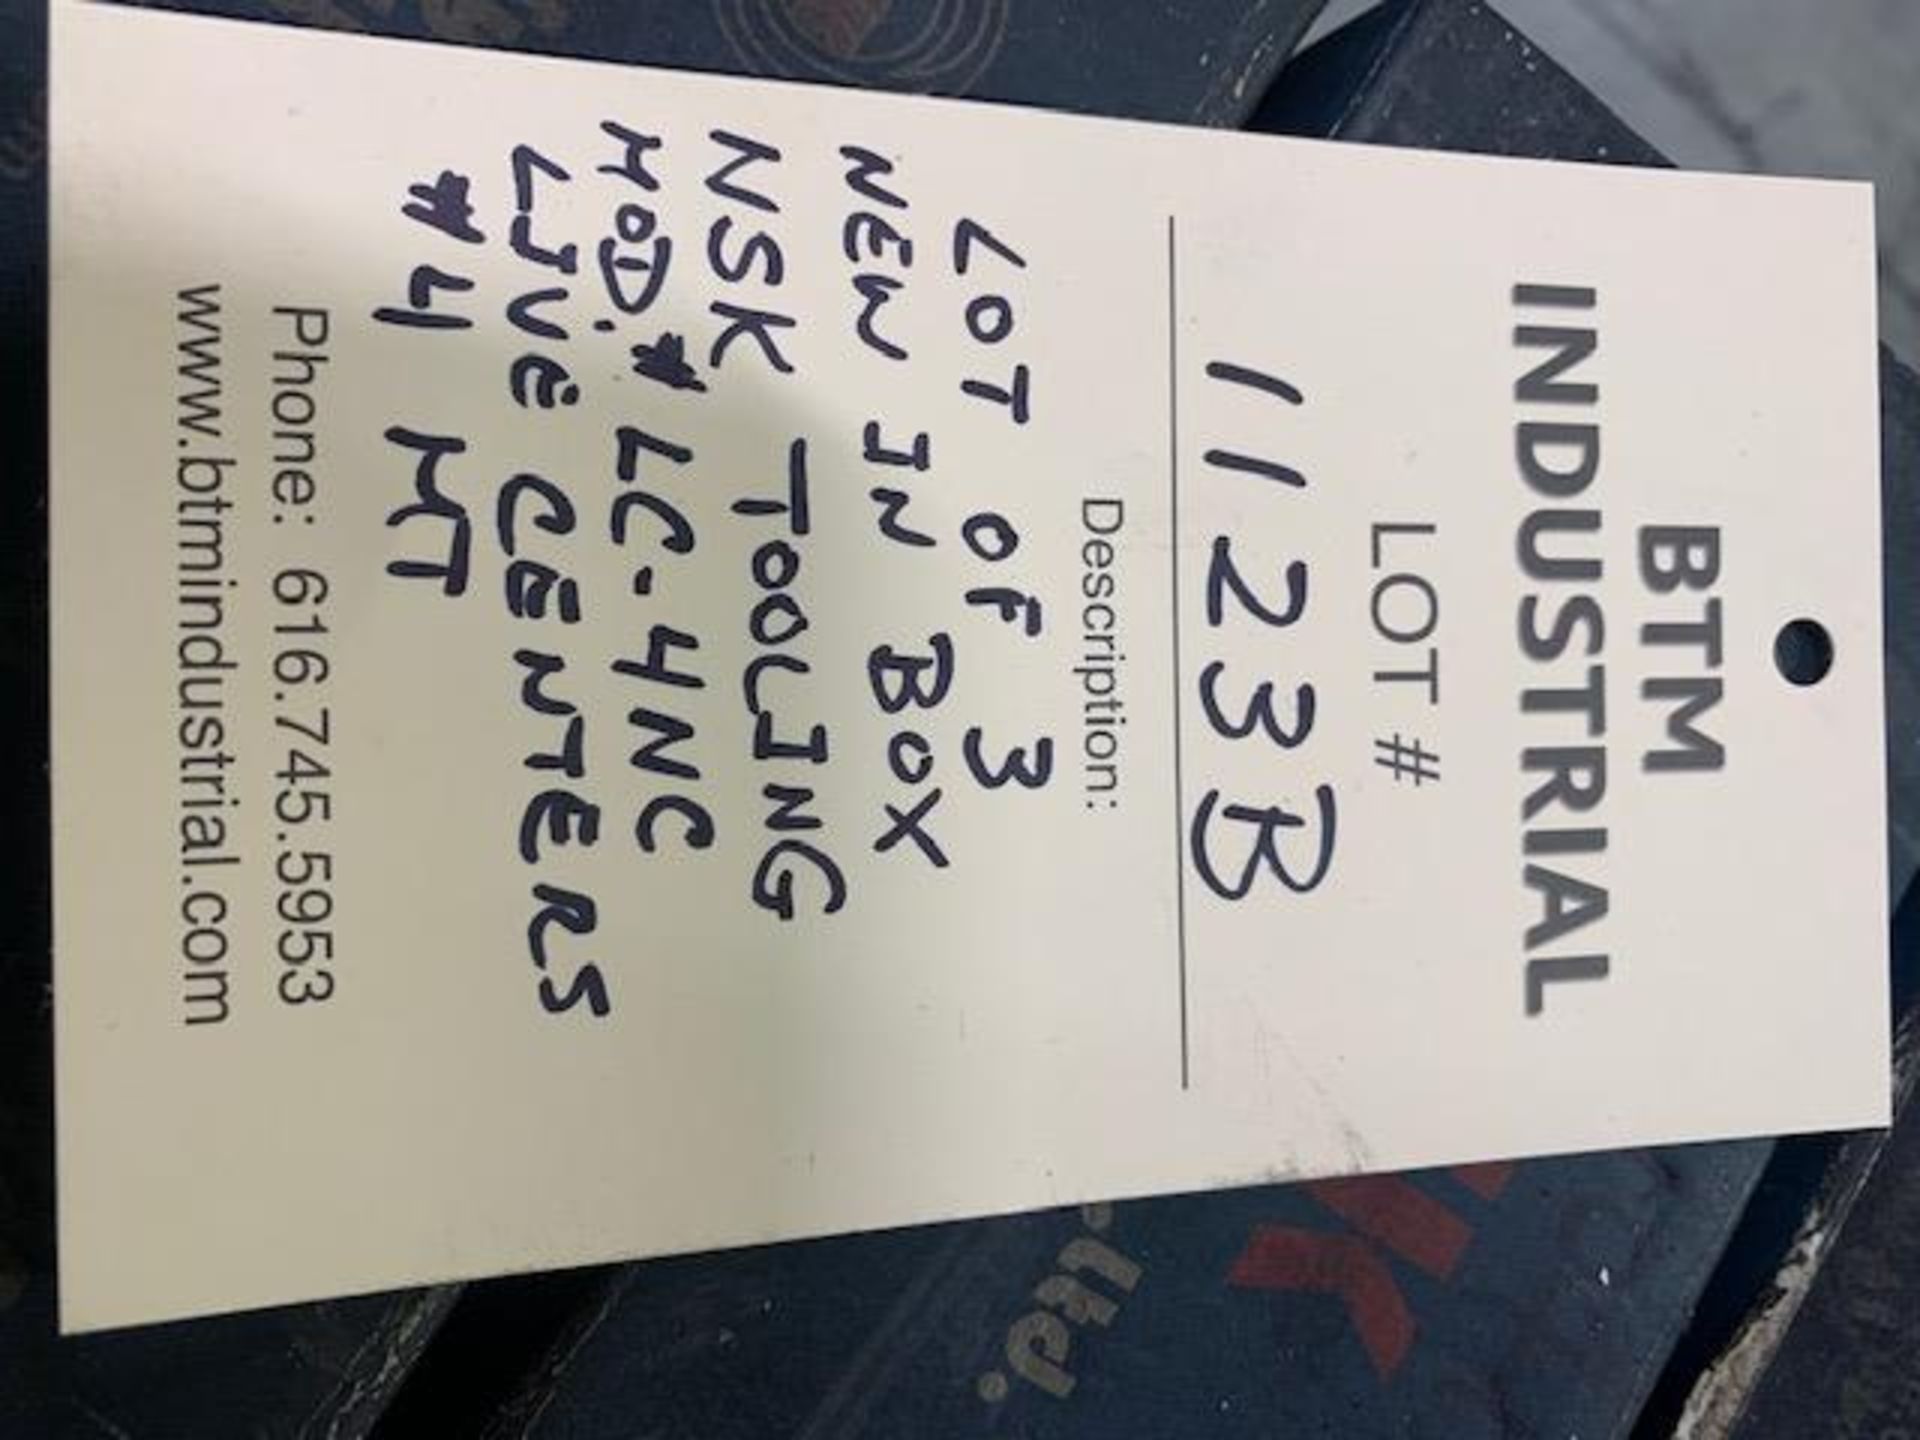 BTM
INDUSTRIAL
LOT #
1123B
Description:
LOT OF 3
NEW IN BOX
NSK TOOLING
MOD. # LC-4NC
LIVE CENTERS
#4 MT
Phone: 616.745.5953
www.btmindustrial.com
Ltd.